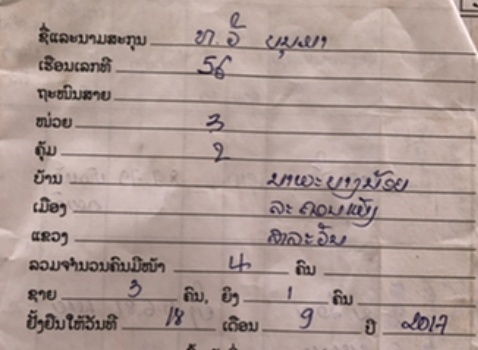 ຊື່ແລະນາມສະກຸນ ທ. ວີ ບຸນມາ
ເຮືອນເລກທີ 56
ຖະໜົນສາຍ
ໜ່ວຍ 3
ຄຸ້ມ 2
ບ້ານ ນາເພະຍາງນ້ອຍ
ເມືອງ ລະຄອນເພັງ
ແຂວງ ສາລະວັນ
ລວມຈຳນວນຄົນມີໜ້າ 4 ຄົນ
ຊາຍ 3 ຄົນ, ຍິງ 1 ຄົນ
ຢັ້ງຢືນໃຫ້ວັນທີ 18 ເດືອນ 9 ປີ 2017